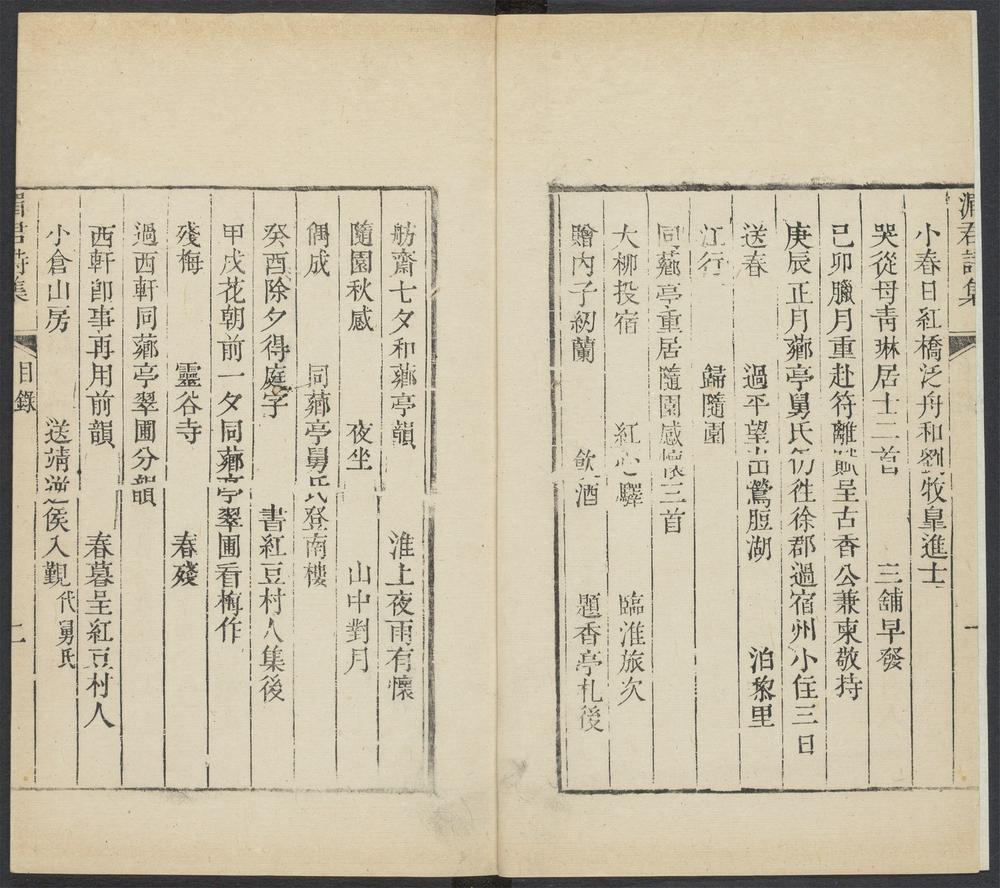 湄君詩集
一
小春日紅橋泛舟和劉牧臯進士
哭從母靑琳居士二首　三舖早發
己卯臘月重赴符離賦呈古香公兼柬敬持
庚辰正月薌亭舅氏仍徃徐郡過宿州小住三日
送春　過平望出鶯脰湖　泊黎里
江行　歸隨園
同薌亭重居隨園感懷三首
大柳投宿　紅心驛　臨淮旅次
贈內子紉蘭　飲酒　題香亭札後
舫齋七夕和薌亭韻　淮上夜雨有懷
隨園秋感　夜坐　山中對月
偶成　同薌亭舅氏登南樓
癸酉除夕得庭字　書紅豆村人集後
甲戌花朝前一夕同薌亭翠圃看梅作
殘梅　靈谷寺　春殘
過西軒同薌亭翠圃分韻
西軒卽事再用前韻　春暮呈紅豆村人
小倉山房　送靖逆侯入覲代舅氏
湄君詩集　目錄　二